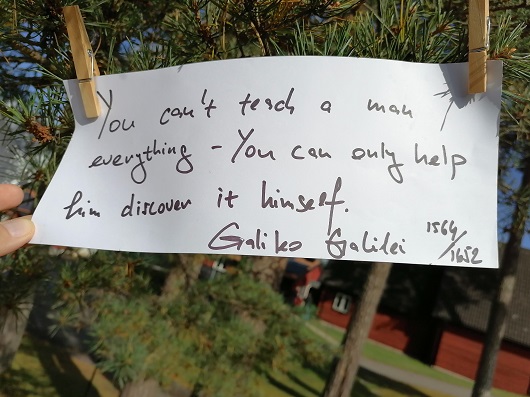 You can't teach a man
everything - You can only help
him discover it himself.
Galileo Galilei 1564/1652